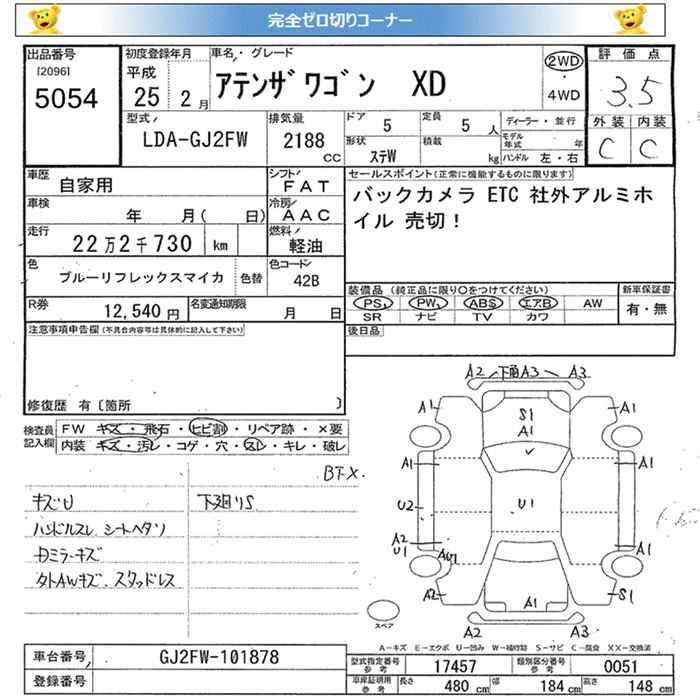 完全ゼロ切りコーナー
出品番号
[2096]
5054
初度登録年月
平成
25 2月
車名・グレード
アテンザワゴン XD
2WD
・
4WD
評価点
3.5
外装 内装
C C
型式
LDA-GJ2FW
排気量
2188
CC
ドア
5
定員
5 人
形状
ステW
積載
kg
ディーラー・並行
モデル年式 年
ハンドル 左・右
車歴
自家用
シフト
FAT
車検
年 月( 日)
冷房
AAC
走行
22万2千730 km
燃料
軽油
色
ブルーリフレックスマイカ
色替
色コード
42B
R券
12,540円
名変通知期限
月 日
セールスポイント(正常に機能するものに限ります)
バックカメラ ETC 社外アルミホ
イル 売切!
装備品 (純正品に限り○をつけてください)
PS PW ABS エアB AW
SR ナビ TV カワ
新車保証書
有・無
後日品
注意事項申告欄(不具合内容等は具体的に記入して下さい)
修復歴 有〔箇所 〕
検査員
記入欄
FW キズ・飛石・ヒビ割・リペア跡・×要
内装 キズ・汚レ・コゲ・穴・スレ・キレ・破レ
BTX
キズU
下廻りS
ハンドルスレ シートヘタリ
カミラーキズ
タトAWキズ、スタッドレス
A2 下角A3 A3
A1
S1
A1
A1
A1
A1
U2
U1
A2
U1
A1
A2
A1
S1
A2
A3
スペア
A-キズ E-エクボ U-凹み W-補修跡 S-サビ C-腐食 XX-交換済
車台番号
GJ2FW-101878
登録番号
型式指定番号
参考
17457
類別区分番号
参考
0051
車庫証明用
参考
長さ
480 cm
幅
184 cm
高さ
148 cm